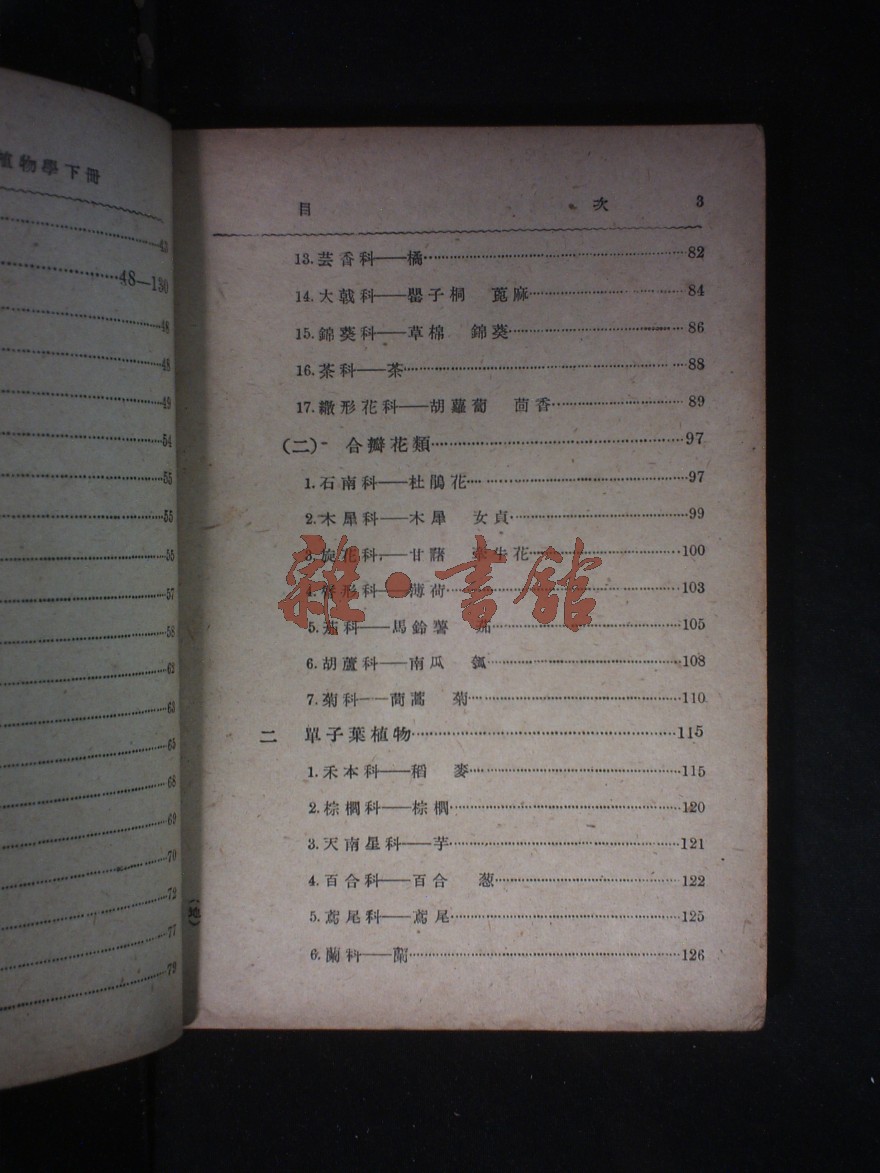 植物學下冊
43
48—130
48
48
49
54
55
55
55
57
58
62
63
65
68
69
70
72
77
79
目 次 3
13.芸香科——橘 82
14.大戟科——罌子桐 蓖麻 84
15.錦葵科——草棉 錦葵 86
16.茶科——茶 88
17.繖形花科——胡蘿蔔 茴香 89
(二) 合瓣花類 97
1.石南科——杜鵑花 97
2.木犀科——木犀 女貞 99
3.旋花科——甘藷 牽牛花 100
4.脣形科——薄荷 103
5.茄科——馬鈴薯 茄 105
6.胡蘆科——南瓜 瓠 108
7.菊科——茼蒿 菊 110
二 單子葉植物 115
1.禾本科——稻 麥 115
2.棕櫚科——棕櫚 120
3.天南星科——芋 121
4.百合科——百合 葱 122
5.鳶尾科——鳶尾 125
6.蘭科——蘭 126
雜·書館